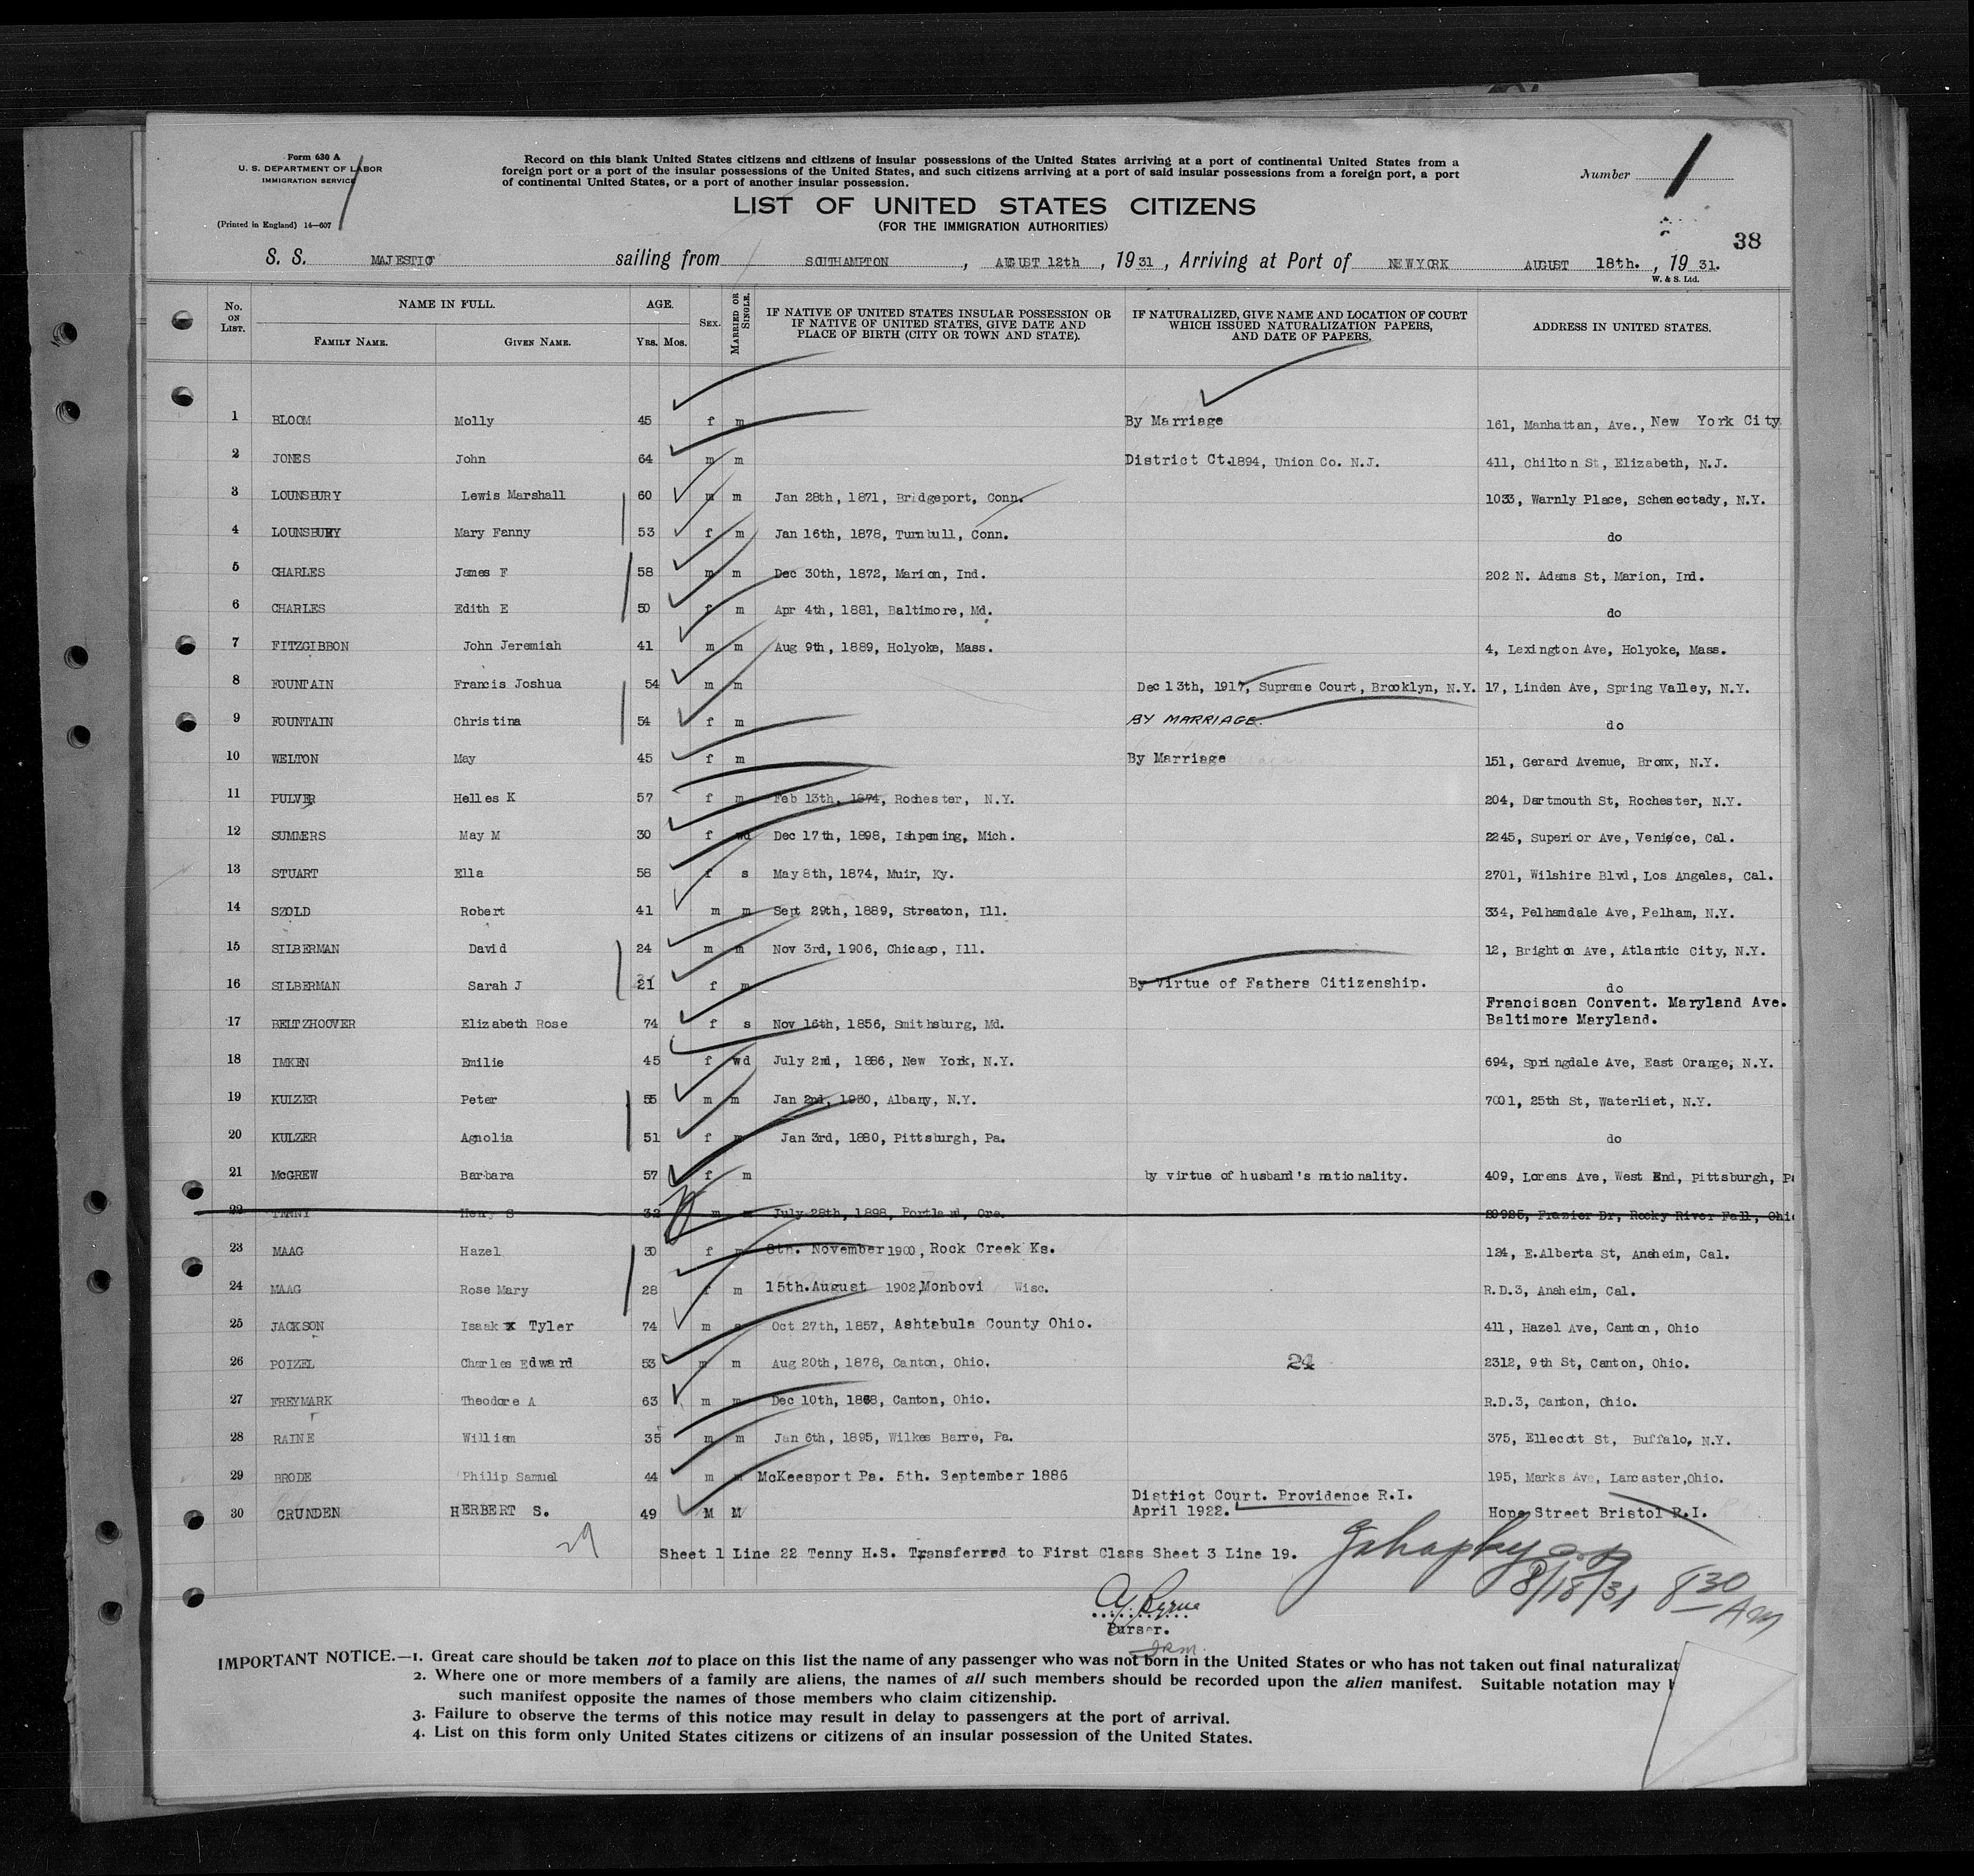 Form 630 A
U. S. DEPARTMENT OF LABOR
IMMIGRATION SERVICE
(Printed in England) 14—607
Record on this blank United States citizens and citizens of insular possessions of the United States arriving at a port of continental United States from a
foreign port or a port of the insular possessions of the United States, and such citizens arriving at a port of said insular possessions from a foreign port, a port
of continental United States, or a port of another insular possession.
Number 1
LIST OF UNITED STATES CITIZENS
(FOR THE IMMIGRATION AUTHORITIES)
38
S. S. MAJESTIC sailing from SOUTHAMPTON, AUGUST 12th, 1931, Arriving at Port of NEWYORK AUGUST 18th., 1931.
W. & S. Ltd.
No. ON LIST. NAME IN FULL. FAMILY NAME. GIVEN NAME. AGE. YRS. MOS. SEX. MARRIED OR SINGLE. IF NATIVE OF UNITED STATES INSULAR POSSESSION OR IF NATIVE OF UNITED STATES, GIVE DATE AND PLACE OF BIRTH (CITY OR TOWN AND STATE). IF NATURALIZED, GIVE NAME AND LOCATION OF COURT WHICH ISSUED NATURALIZATION PAPERS, AND DATE OF PAPERS. ADDRESS IN UNITED STATES.
1 BLOOM Molly 45 f m By Marriage 161, Manhattan, Ave., New York City
2 JONES John 64 m m District Ct.1894, Union Co. N.J. 411, Chilton St, Elizabeth, N.J.
3 LOUNSBURY Lewis Marshall 60 m m Jan 28th, 1871, Bridgeport, Conn. 1033, Warnly Place, Schenectady, N.Y.
4 LOUNSBURY Mary Fanny 53 f m Jan 16th, 1878, Turnbull, Conn. do
5 CHARLES James F 58 m m Dec 30th, 1872, Marion, Ind. 202 N. Adams St, Marion, Ind.
6 CHARLES Edith E 50 f m Apr 4th, 1881, Baltimore, Md. do
7 FITZGIBBON John Jeremiah 41 m m Aug 9th, 1889, Holyoke, Mass. 4, Lexington Ave, Holyoke, Mass.
8 FOUNTAIN Francis Joshua 54 m m Dec 13th, 1917, Supreme Court, Brooklyn, N.Y. 17, Linden Ave, Spring Valley, N.Y.
9 FOUNTAIN Christina 54 f m BY MARRIAGE. do
10 WELTON May 45 f m By Marriage 151, Gerard Avenue, Bronx, N.Y.
11 PULVER Helles K 57 f m Feb 13th, 1874, Rochester, N.Y. 204, Dartmouth St, Rochester, N.Y.
12 SUMMERS May M 30 f wd Dec 17th, 1898, Ishpeming, Mich. 2245, Superior Ave, Venice, Cal.
13 STUART Ella 58 f s May 8th, 1874, Muir, Ky. 2701, Wilshire Blvd, Los Angeles, Cal.
14 SZOLD Robert 41 m m Sept 29th, 1889, Streaton, Ill. 334, Pelhamdale Ave, Pelham, N.Y.
15 SILBERMAN David 24 m m Nov 3rd, 1906, Chicago, Ill. 12, Brighton Ave, Atlantic City, N.Y.
16 SILBERMAN Sarah J 21 f m By Virtue of Fathers Citizenship. do
17 BELTZHOOVER Elizabeth Rose 74 f s Nov 16th, 1856, Smithsburg, Md. Franciscan Convent. Maryland Ave. Baltimore Maryland.
18 IMKEN Emilie 45 f wd July 2nd, 1886, New York, N.Y. 694, Springdale Ave, East Orange, N.Y.
19 KULZER Peter 55 m m Jan 2nd, 1930, Albany, N.Y. 7001, 25th St, Waterliet, N.Y.
20 KULZER Agnolia 51 f m Jan 3rd, 1880, Pittsburgh, Pa. do
21 McGREW Barbara 57 f m by virtue of husband's nationality. 409, Lorens Ave, West End, Pittsburgh, Pa
22 TENNY Henry S 32 m m July 28th, 1898, Portland, Ore. Frazier Dr, Rocky River Fall, Ohio
23 MAAG Hazel 30 f m 8th. November 1900, Rock Creek Ks. 124, E.Alberta St, Anaheim, Cal.
24 MAAG Rose Mary 28 f m 15th.August 1902,Monbovi Wisc. R.D.3, Anaheim, Cal.
25 JACKSON Isaak x Tyler 74 m s Oct 27th, 1857, Ashtabula County Ohio. 411, Hazel Ave, Canton, Ohio
26 POIZEL Charles Edward 53 m m Aug 20th, 1878, Canton, Ohio. 24 2312, 9th St, Canton, Ohio.
27 FREYMARK Theodore A 63 m m Dec 10th, 1868, Canton, Ohio. R.D.3, Canton, Ohio.
28 RAINE William 35 m m Jan 6th, 1895, Wilkes Barre, Pa. 375, Ellecott St, Buffalo, N.Y.
29 BRODE Philip Samuel 44 m m McKeesport Pa. 5th. September 1886 195, Marks Ave, Lancaster,Ohio.
30 CRUNDEN HERBERT S. 49 M M District Court. Providence R.I. April 1922. Hope Street Bristol R.I.
29
Sheet 1 Line 22 Tenny H.S. Transferred to First Class Sheet 3 Line 19.
8/18/31 8 30 AM
Byrne
Purser.
IMPORTANT NOTICE.—1. Great care should be taken not to place on this list the name of any passenger who was not born in the United States or who has not taken out final naturalizat
2. Where one or more members of a family are aliens, the names of all such members should be recorded upon the alien manifest. Suitable notation may
such manifest opposite the names of those members who claim citizenship.
3. Failure to observe the terms of this notice may result in delay to passengers at the port of arrival.
4. List on this form only United States citizens or citizens of an insular possession of the United States.